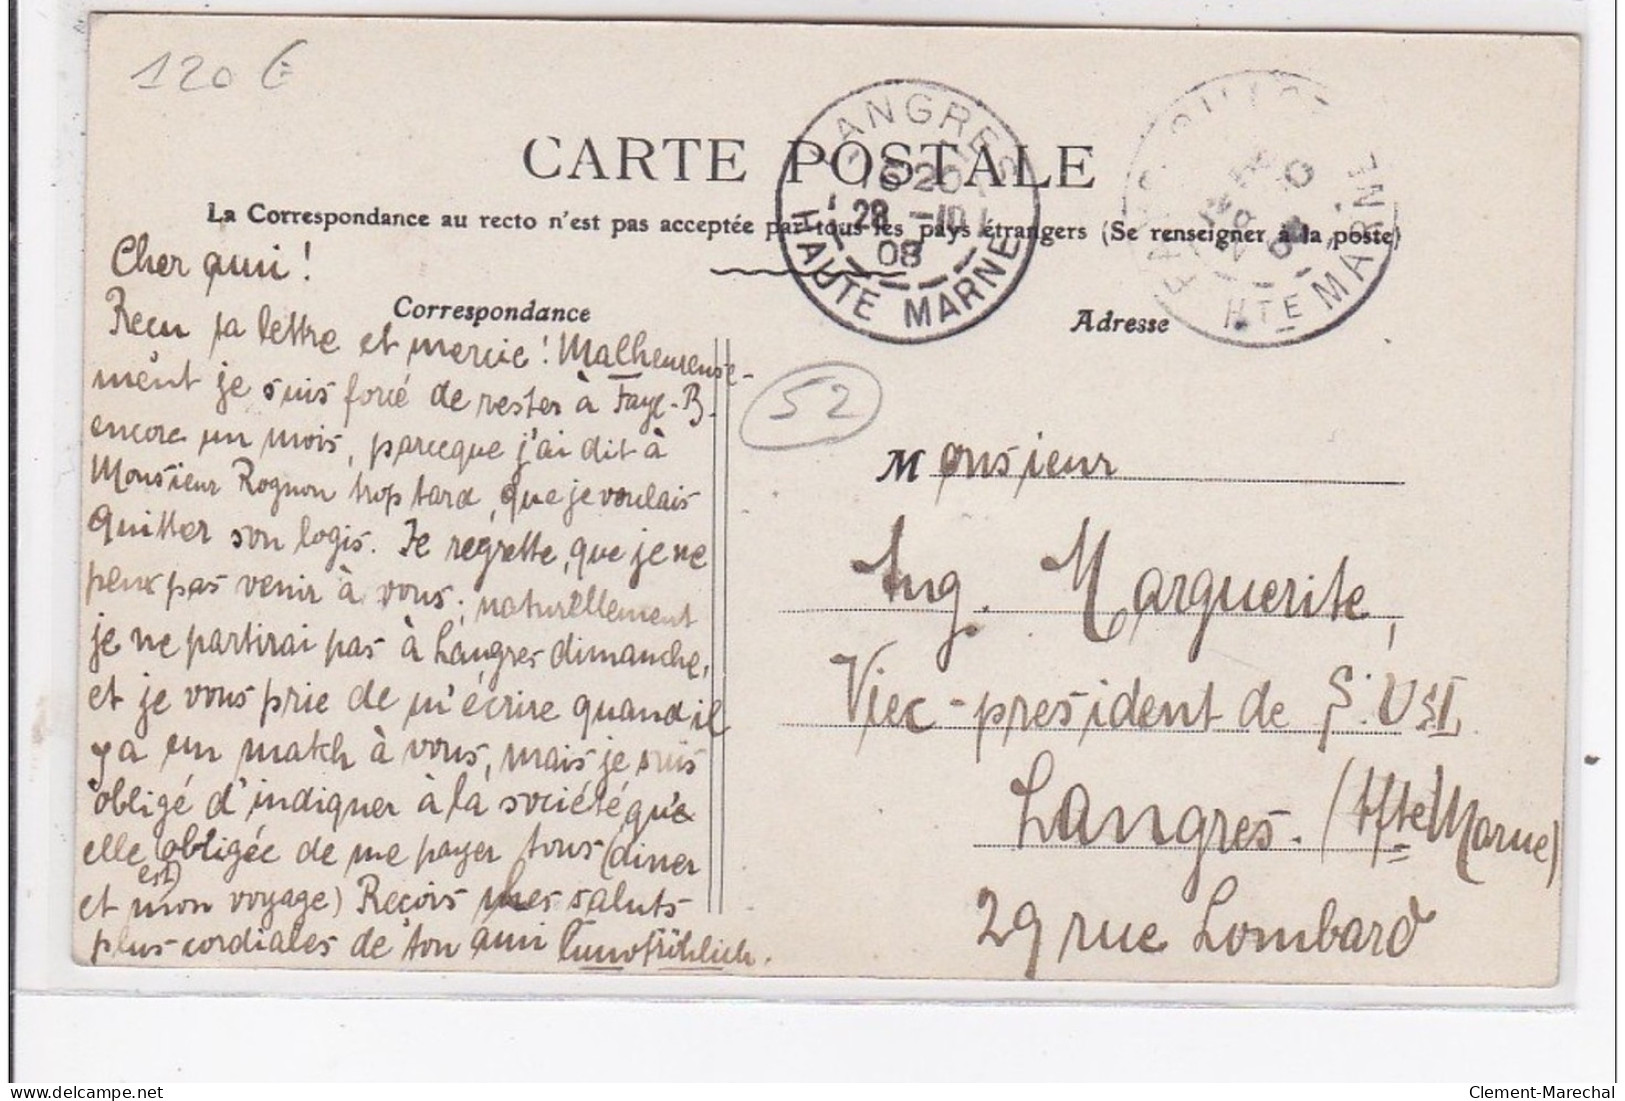 120 €
CARTE POSTALE
La Correspondance au recto n'est pas acceptée par tous les pays étrangers (Se renseigner à la poste)
LANGRES
16 20
28 -10
08
HAUTE MARNE
HTE MARNE
Correspondance
Adresse
52
Cher ami !
Recu ta lettre et mercie ! Malheureuse-
ment je suis forcé de rester à Fayl-B.
encore un mois, parceque j'ai dit à
Monsieur Rognon trop tard, que je voulais
quitter son logis. Je regrette, que je ne
peux pas venir à vous; naturellement
je ne partirai pas à Langres dimanche,
et je vous prie de m'écrire quand il
y a un match à vous, mais je suis
obligé d'indiquer à la société que
elle est obligée de me payer tous (diner
et mon voyage) Reçois mes saluts
plus cordiales de ton ami
Monsieur
Aug. Marguerite,
Viec-president de S. USL
Langres. (Hte Marne)
29 rue Lombard
Clement-Marechal